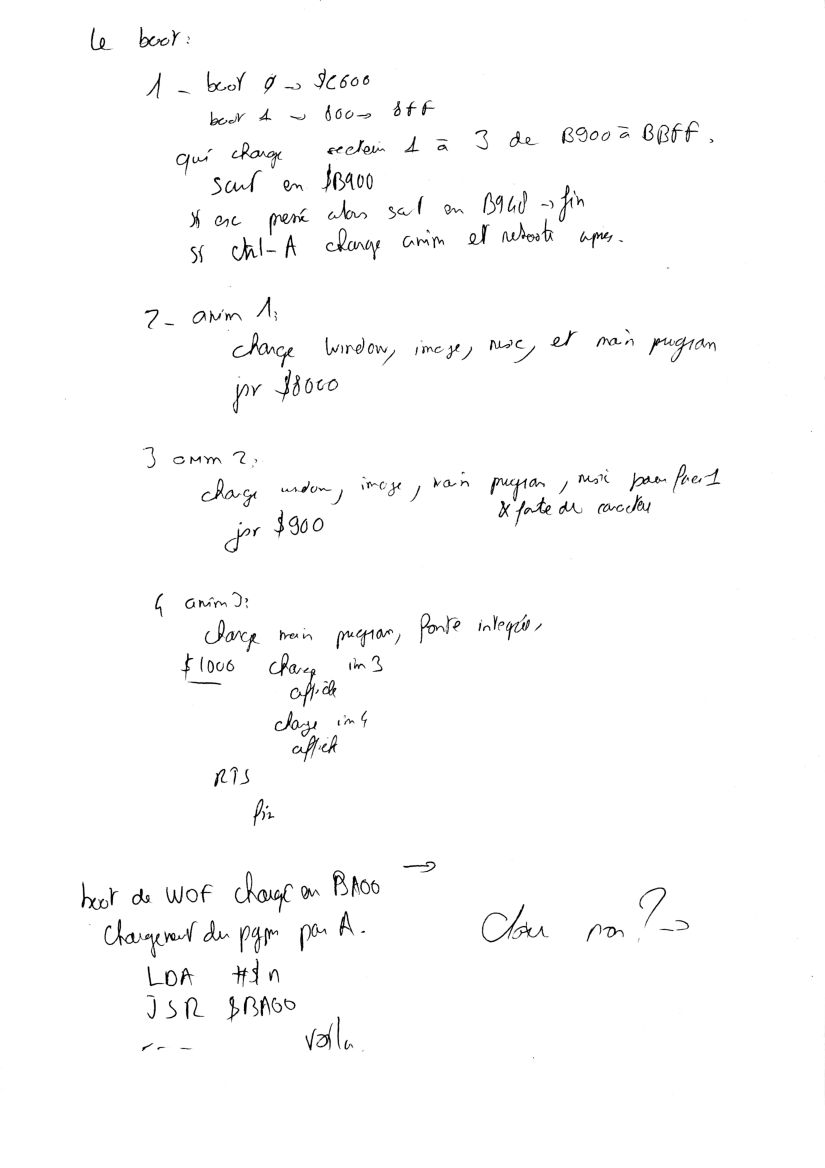 Le boot:
1 - boot 0 → $C600
boot 1 → 800 → 8FF
qui charge secteur 1 à 3 de B900 à BBFF.
saut en $B900
si esc pressé alors saut en B948 → fin
si ctrl-A charge anim et reboote apres.
2 - anim 1:
charge window, image, music, et main program
jsr $8000
3 anim 2:
charge window, image, main program, music pour
& fonte de caractere
jsr $900
4 anim 3:
charge main program, fonte integrée,
$1000 charge im 3
affiche
charge im 4
affiche
RTS
fin
boot de WOF chargé en BA00 →
Chargement du pgm par A.
Clair non ? →
LDA #$n
JSR $BA00
--- voila.